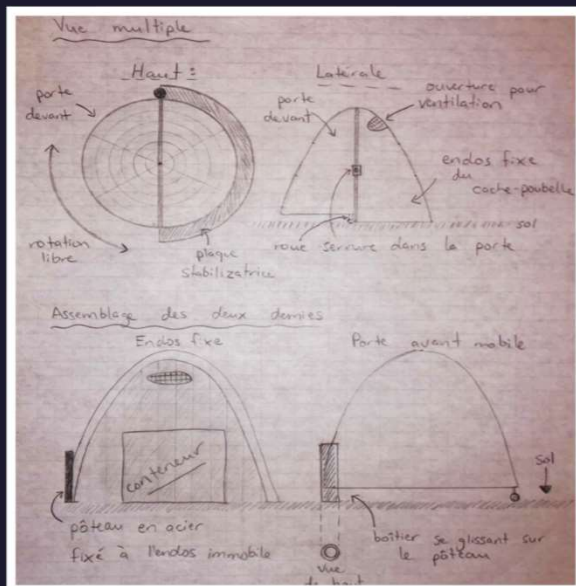 Vue multiple
Haut :
porte
devant
rotation
libre
plaque
stabilizatrice
Latérale
porte
devant
ouverture pour
ventilation
endos fixe
du
cache-poubelle
sol
roue
serrure dans la porte
Assemblage des deux demies
Endos fixe
conteneur
pôteau en acier
fixé à l'endos immobile
Porte avant mobile
sol
boîtier se glissant sur
le pôteau
vue
de haut